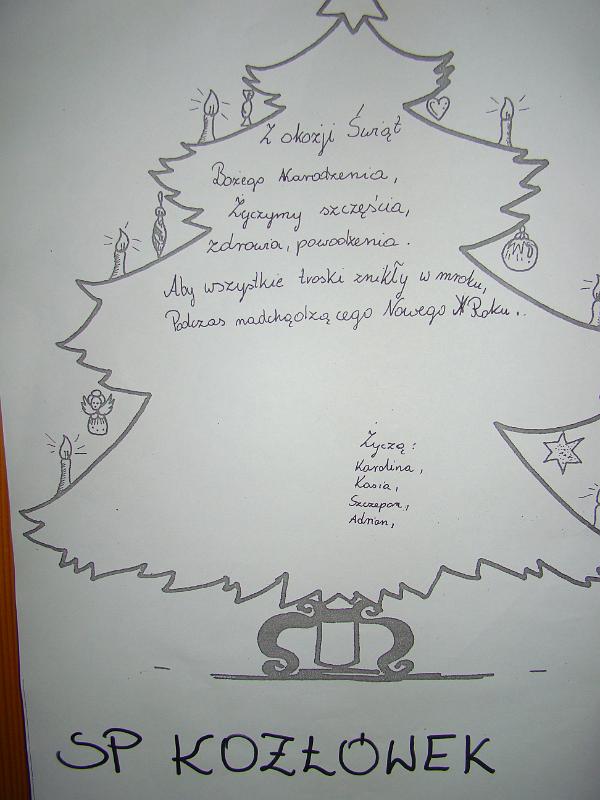 Z okazji Świąt
Bożego Narodzenia,
Życzymy szczęścia,
zdrowia, powodzenia.
Aby wszystkie troski znikły w mroku,
Podczas nadchodzącego Nowego Roku..
Życzą:
Karolina,
Kasia,
Szczepan,
Adrian,
SP KOZŁÓWEK